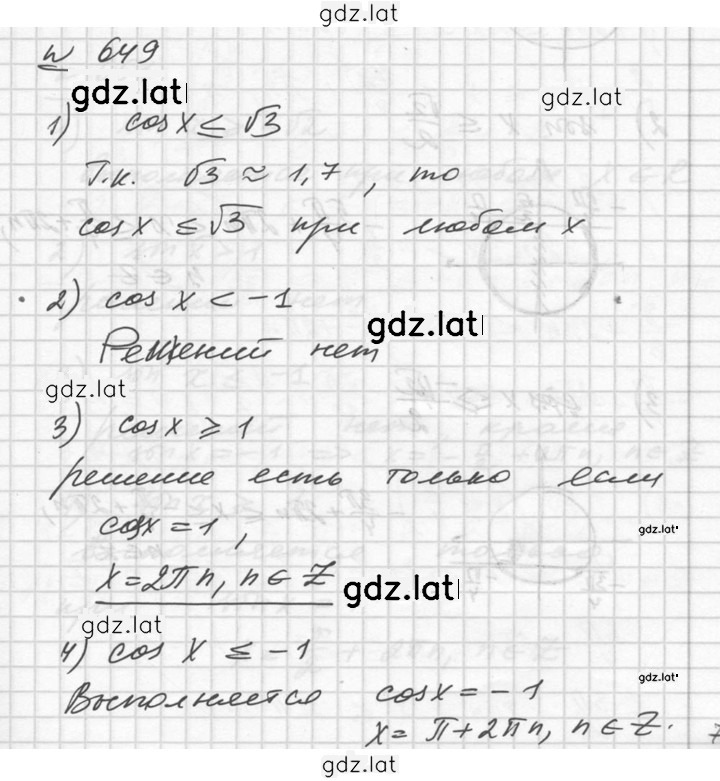 gdz.lat
№ 649
gdz.lat
gdz.lat
1) cos x ≤ √3
Т.к. √3 ≈ 1,7, то
cos x ≤ √3 при любом x
2) cos x < -1
gdz.lat
Решений нет
gdz.lat
3) cos x ≥ 1
решение есть только если
cos x = 1,
gdz.lat
x = 2πn, n ∈ Z
gdz.lat
gdz.lat
4) cos x ≤ -1
gdz.lat
Выполняется cos x = -1
x = π + 2πn, n ∈ Z.
gdz.lat